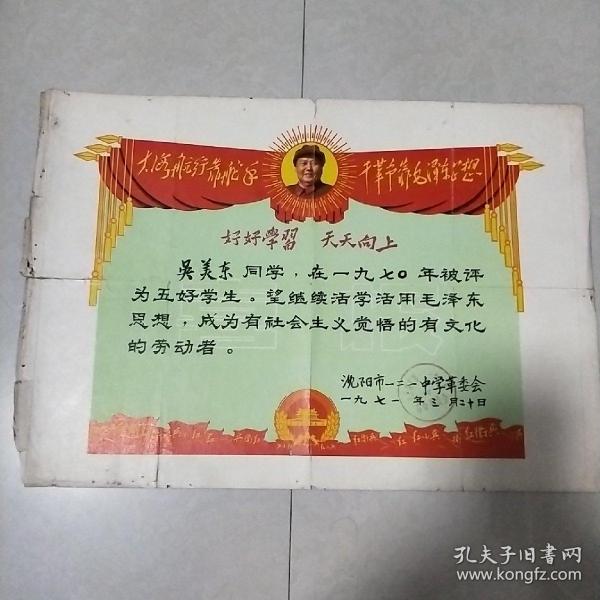 大海航行靠舵手
干革命靠毛泽东思想
好好學習 天天向上
吴美东同学，在一九七〇年被评
为五好学生。望继续活学活用毛泽东
思想，成为有社会主义觉悟的有文化
的劳动者。
沈阳市一二一中学革委会
一九七一年三月二十日
喜报
红卫兵 红 红小兵 红卫兵
孔夫子旧书网
www.kongfz.com